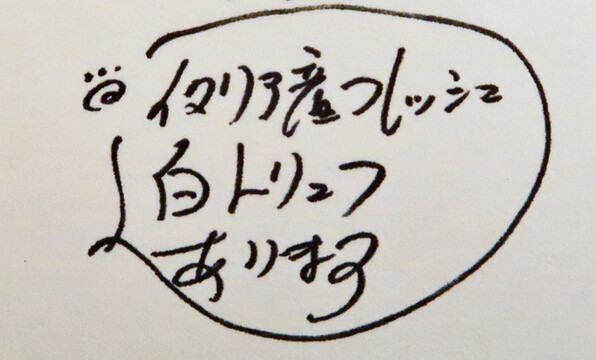 イタリア産フレッシュ
白トリュフ
あります